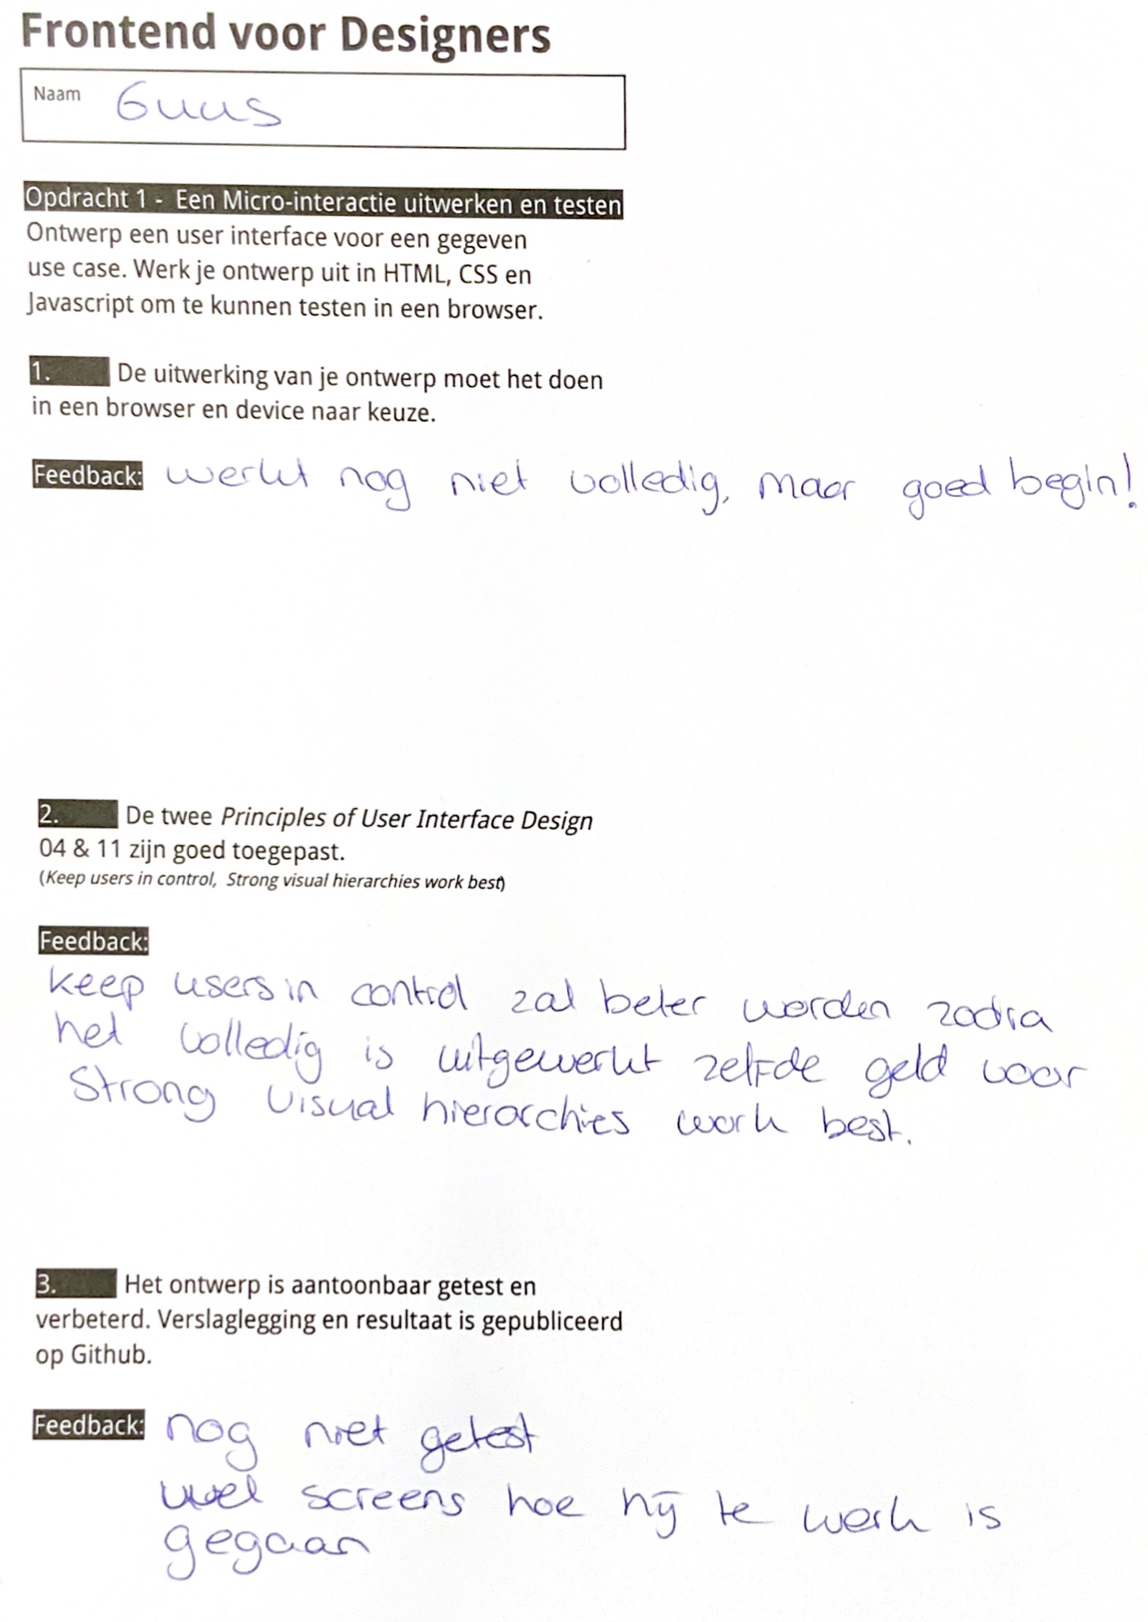 Frontend voor Designers
Naam Guus
Opdracht 1 - Een Micro-interactie uitwerken en testen
Ontwerp een user interface voor een gegeven
use case. Werk je ontwerp uit in HTML, CSS en
Javascript om te kunnen testen in een browser.
1. De uitwerking van je ontwerp moet het doen
in een browser en device naar keuze.
Feedback: werkt nog niet volledig, maar goed begin!
2. De twee Principles of User Interface Design
04 & 11 zijn goed toegepast.
(Keep users in control, Strong visual hierarchies work best)
Feedback:
keep users in control zal beter worden zodra
het volledig is uitgewerkt zelfde geld voor
Strong visual hierarchies work best.
3. Het ontwerp is aantoonbaar getest en
verbeterd. Verslaglegging en resultaat is gepubliceerd
op Github.
Feedback: nog niet getest
wel screens hoe hij te werk is
gegaan